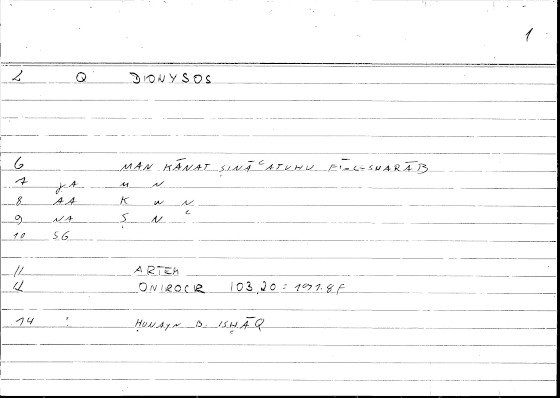 1
2 Q DIONYSOS
6 MAN KĀNAT ṢINĀʿATUHU FĪ-L-SHARĀB
7 JA M N
8 AA K W N
9 NA Ṣ N ʿ
10 SG
11 ARTEM
4 ONIROCR 103,20 : 191.8 F
14 ḤUNAYN B. ISḤĀQ